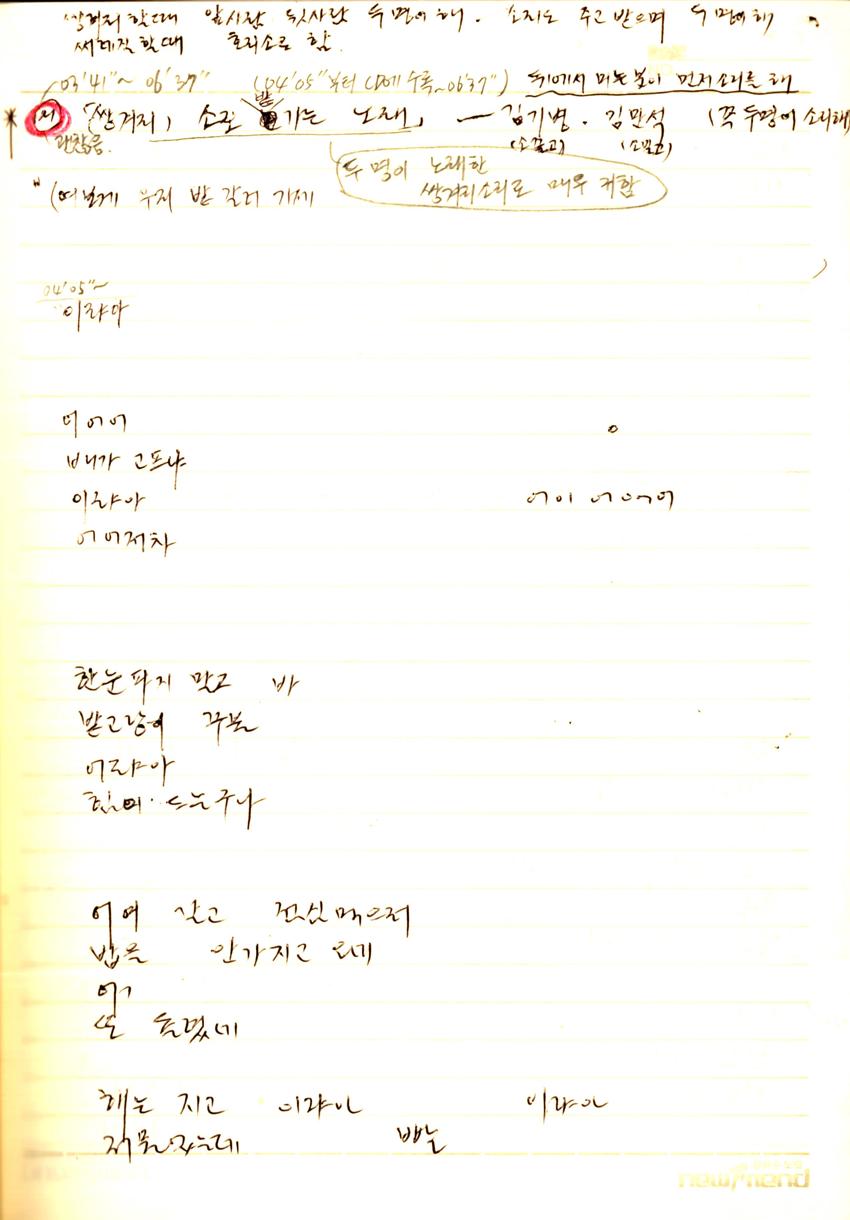 쌍겨리 할때 앞사람 뒷사람 두명이 해. 소리도 주고 받으며 두명이해
써레질 할때 호리소로 함.
03'41"~06'37" (04'05"부터 CD에 수록~06'37") 뒤에서 미는분이 먼저소리를 해
「쌍겨리」 소로 밭가는 노래」 — 김기병. 김민석 (꼭 두명이 소리해)
괜찮음. (소몰고) (소몰고)
두명이 노래한
쌍겨리소리로 매우 귀함
"(여보게 우리 밭 갈러 가세
04'05"~
이랴아
어어어
배가 고프냐
이랴아 어이 어어어
어어저차
한눈파지 말고 바
밭고랑이
어랴아
힘이 드는구나
어여 갈고 점심먹으러
밥을 안가지고 오네
어
또 틀렸네
해는 지고 이랴아 이랴아
저물었는데 빨
newmend